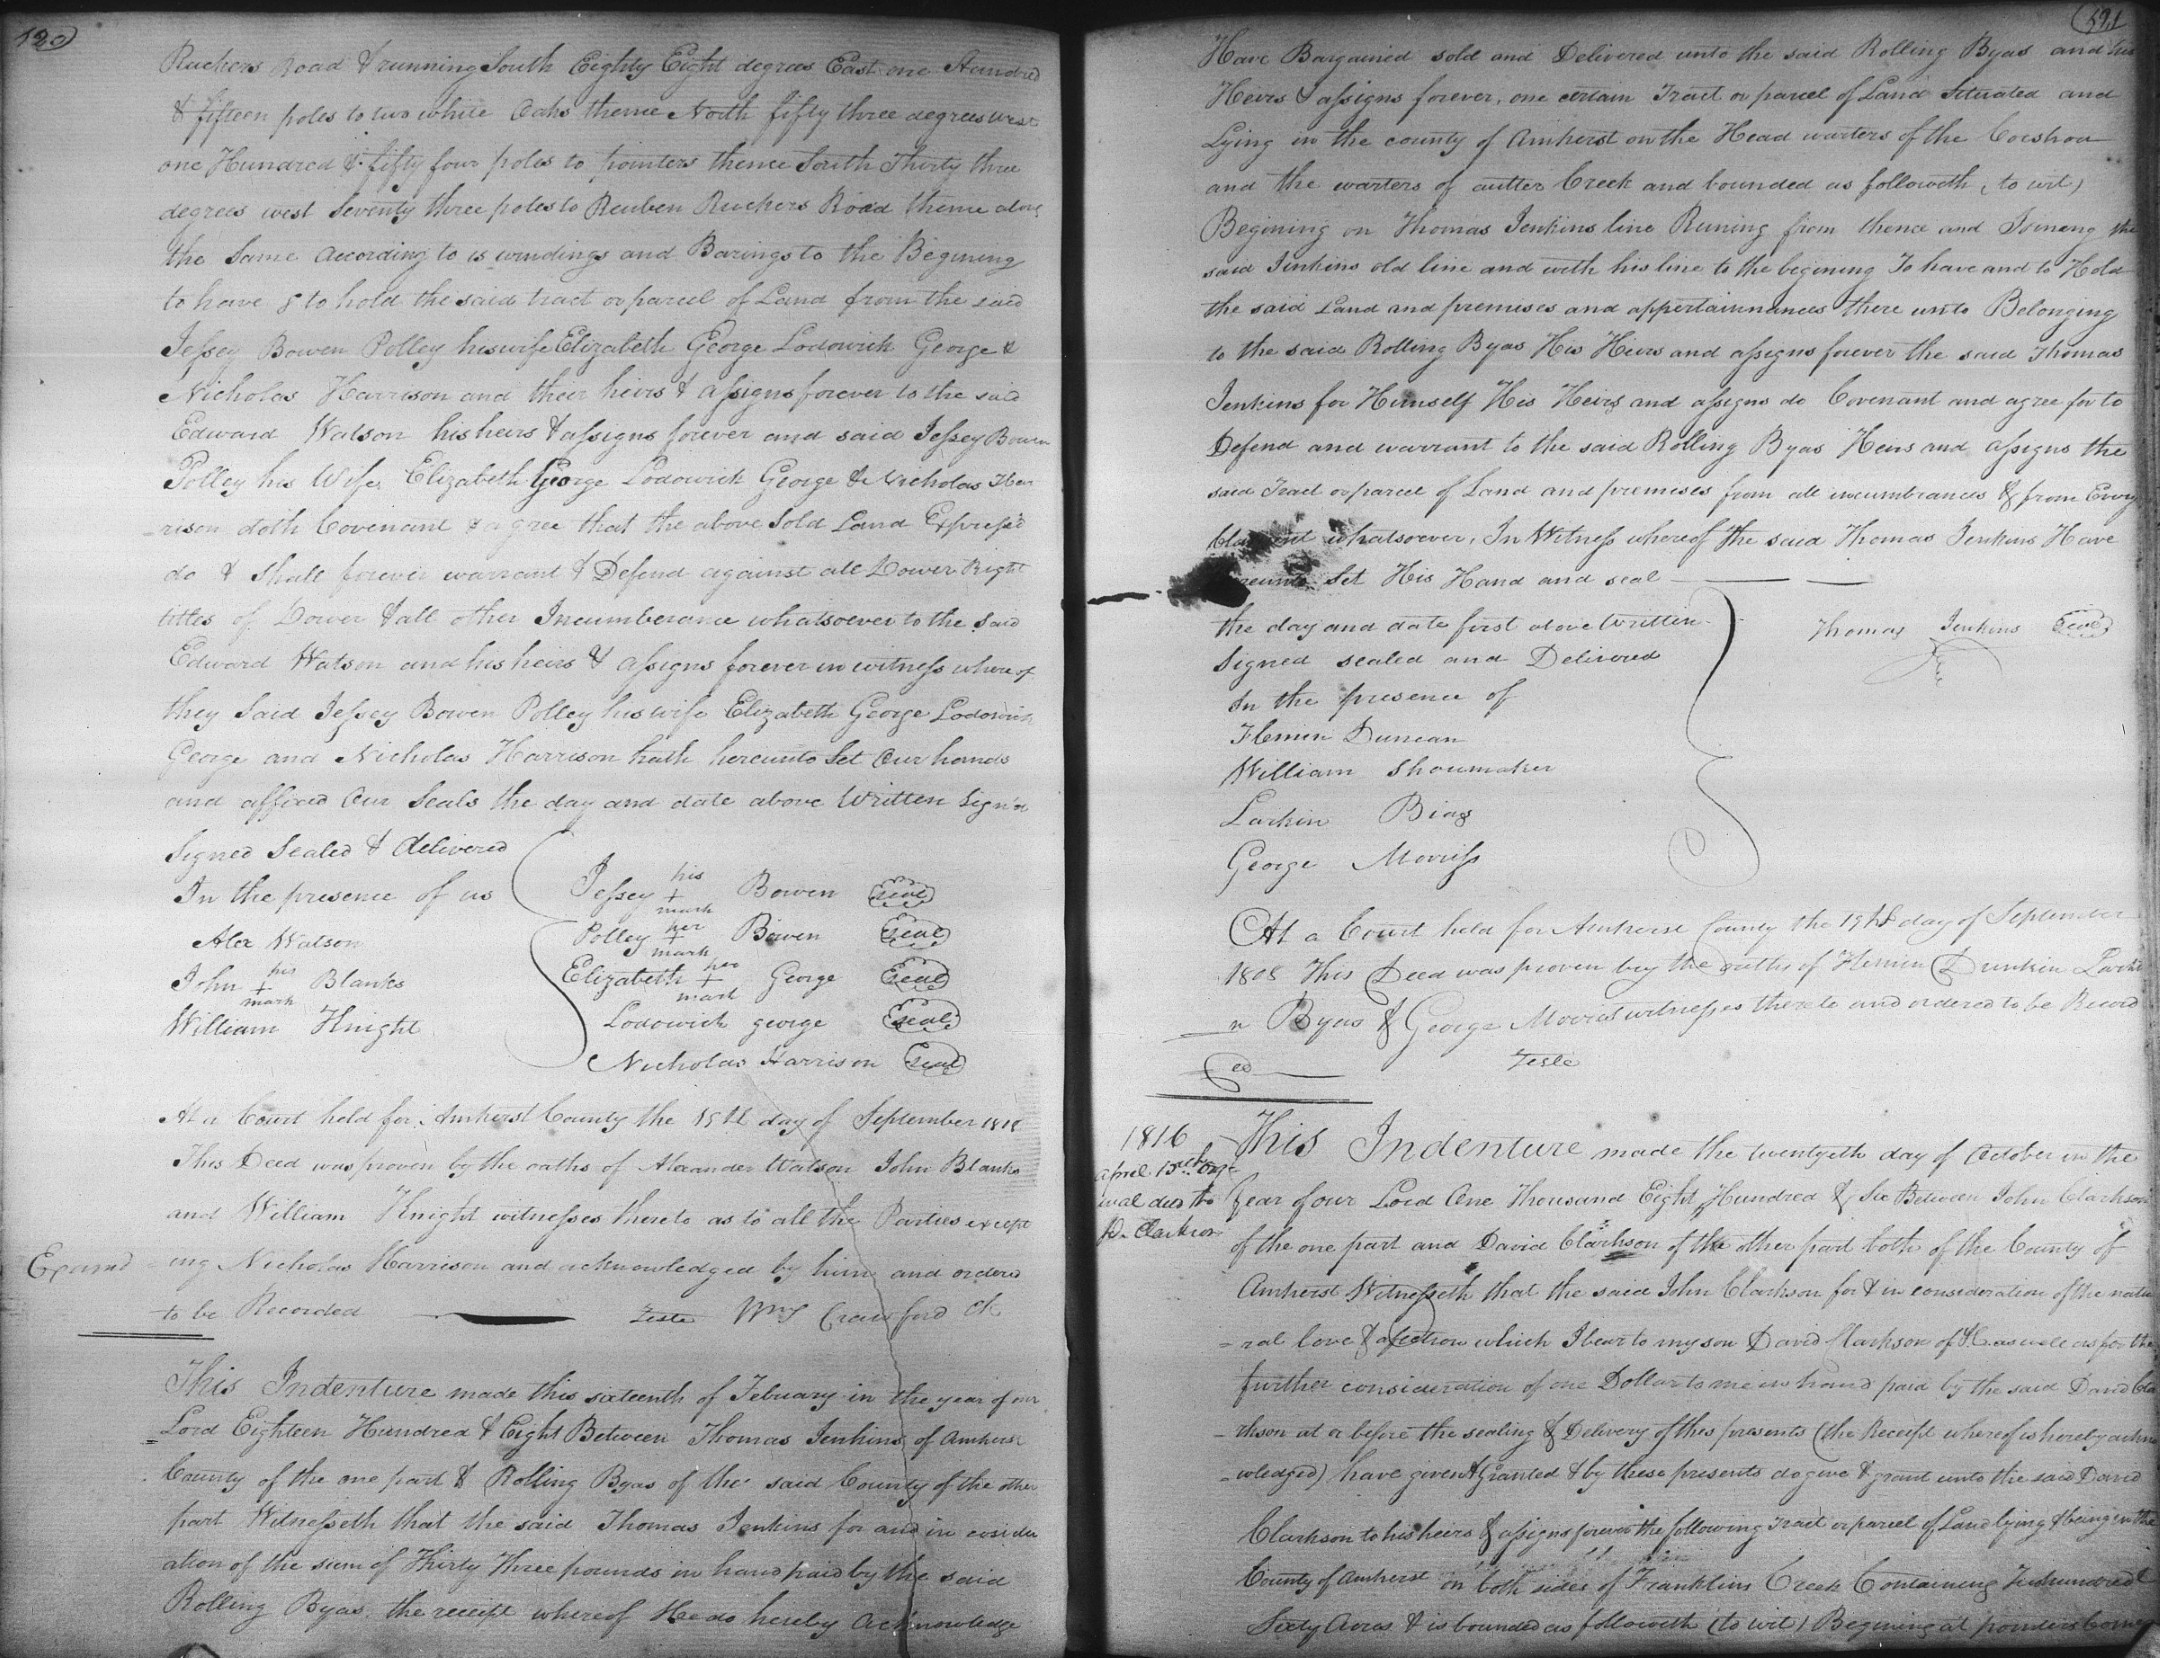 520
Ruckers Road & running South Eighty Eight degrees East one Hundred
& fifteen poles to two white Oaks thence North fifty three degrees west
one Hundred & fifty four poles to pointers thence South Thirty three
degrees west Seventy three poles to Reuben Ruckers Road thence along
the Same According to is windings and Barings to the Begining
to have & to hold the said tract or parcel of Land from the said
Jessey Bowen Polley his wife Elizabeth George Lodowick George &
Nicholas Harrison and their heirs & assigns forever to the said
Edward Watson his heirs & assigns forever and said Jessey Bowen
Polley his Wife Elizabeth George Lodowick George & Nicholas Har
-rison doth Covenant & agree that the above Sold Land Express'd
do & Shall forever warrant & Defend against all Dower Right
titles of Dower & all other Incumberance whatsoever to the Said
Edward Watson and his heirs & assigns forever in witness where of
they Said Jessey Bowen Polley his wife Elizabeth George Lodowick
George and Nicholas Harrison hath hereunto Set Our hands
and affixed Our Seals the day and date above Written Sign'd
Signed Sealed & delivered
In the presence of us
Alex Watson
John his + mark Blanks
William Knight
Jessey his + mark Bowen Seal
Polley her + mark Bowen Seal
Elizabeth her + mark George Seal
Lodowick george Seal
Nicholas Harrison Seal
At a Court held for Amherst County the 19th day of September 1808
This Deed was proven by the oaths of Alexander Watson John Blanks
and William Knight witnesses thereto as to all the Parties except
Examd
ing Nicholas Harrison and acknowledged by him and ordered
to be Recorded Teste Wm S Crawford Ck
This Indenture made this sixteenth of February in the year of our
Lord Eighteen Hundred & Eight Between Thomas Jenkins of Amherst
County of the one part & Rolling Byas of the said County of the other
part Witnesseth that the said Thomas Jenkins for and in conside
ation of the sum of Thirty Three pounds in hand paid by the said
Rolling Byas the receipt whereof He do hereby Acknowledge
521
Have Bargained sold and Delivered unto the said Rolling Byas and his
Heirs & assigns forever, one certain Tract or parcel of Land Situated and
Lying in the county of Amherst on the Head warters of the
and the warters of cutter Creek and bounded as followeth, to wit,
Begining on Thomas Jenkins line Runing from thence and Joineng the
said Jinkins old line and with his line to the begining To have and to Hold
the said Land and premises and appertainnances there unto Belonging
to the said Rolling Byas His Heirs and assigns forever the said Thomas
Jenkins for Himself His Heirs and assigns do Covenant and agree for to
Defend and warrant to the said Rolling Byas Heirs and assigns the
said Tract or parcel of Land and premises from all incumbrances & from Every
whatsoever, In Witness whereof the said Thomas Jenkins Have
Set His Hand and seal
the day and date first above written
Signed sealed and Delivered
In the presence of
Flemin Duncan
William Shoumaker
Larkin Bias
George Morriss
Thomas Jenkins Seal
At a Court held for Amherst County the 19th day of September
1808 This Deed was proven by the oaths of Flemin Dunkin Larki
n Byas & George Morris witnesses thereto and ordered to be Record
ed Teste
1816
April 15th
deed to
D. Clarkson
This Indenture made the twentyeth day of October in the
year of our Lord One Thousand Eight Hundred & Six Between John Clarkson
of the one part and David Clarkson of the other part both of the County of
Amherst Witnesseth that the said John Clarkson for & in consideration of the natu
-ral love & afection which I bear to my son David Clarkson of as well as for the
further consideration of one Dollar to me in hand paid by the said David Cla
-rkson at or before the sealing & Delivery of thes presents (the Receipt whereof is hereby ackno
-wledged) have given & Granted & by these presents do give & grant unto the said David
Clarkson to his heirs & assigns forever the following Tract or parcel of Land lying & being in the
County of Amherst on both sides of Franklins Creek Containing
Sixty Acres & is bounded as followeth (to wit) Begining at pointers